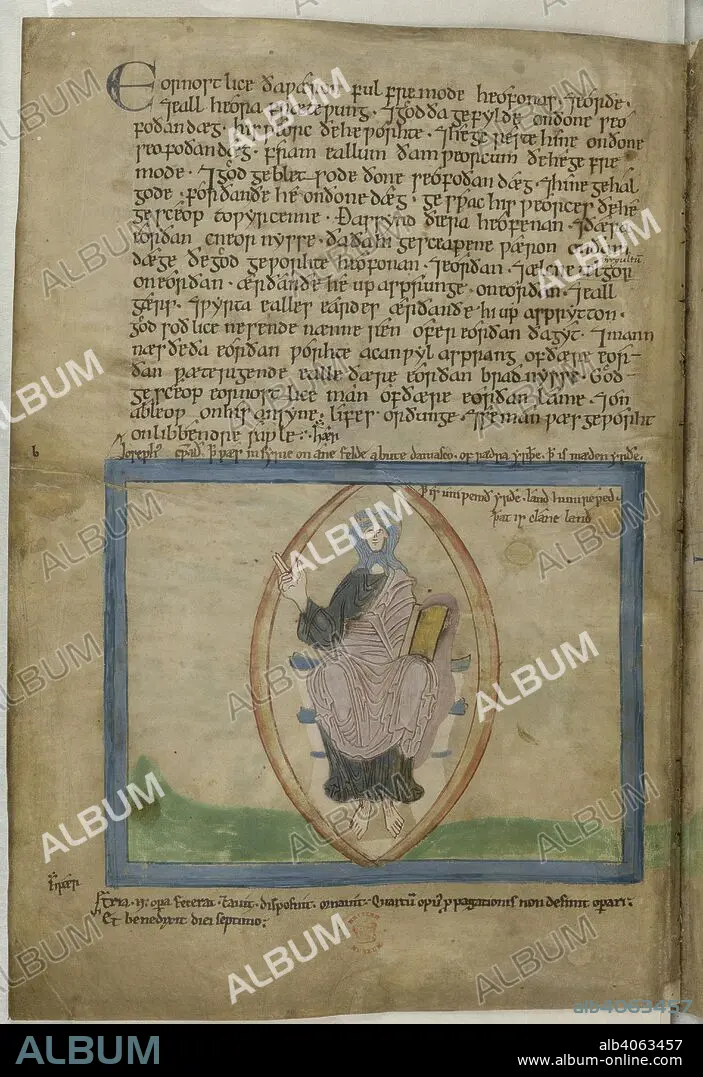 Eornostlice ða pæron ful fremode heofonas ⁊ eorðe
⁊ eall heora frætepung ⁊ god ða gefylde on ðone seo
foðan dæg his peorc ðe he porhte ⁊ he gereste hine on ðone
seofoðan dæg fram eallum ðam peorcum ðe he gefre
mode ⁊ god geblet sode ðone seofoðan dæg ⁊ hine gehal
gode forðan ðe he on ðone dæg gespac his peorces ðe he
gesceop to pyrcenne Ðas synd ðæra heofenan ⁊ ðære
eorðan cneornysse ða ða hi gesceapene pæron on ðam
dæge ðe god geporhte heofonan ⁊ eorðan ⁊ ælcne telgor
on eorðan ær ðan ðe he up asprunge on eorðan ⁊ eall
gærs ⁊ pyrta ealles eardes ær ðan ðe hi up asprytton
god soðlice ne sende nænne ren ofer eorðan ða gyt ⁊ mann
næs ðe ða eorðan porhte ac an pyl asprang of ðære eor-
ðan pæterigende ealle ðære eorðan bradnysse God
gesceop eornostlice man of ðære eorðan lame ⁊ on
ableop on his ansyne lifes orðunge ⁊ se man pæs geporht
on libbendre saple
b
Joseph' þ pær in syrie on ane felde abute damasco
land
þat is clane land
opera fecerat disposuit ornauit Quartum propagationis non desinit operari
Et benedixit diei septimo
ALBUM
alb4063457
ALBUM
alb4063457
www.album-online.com